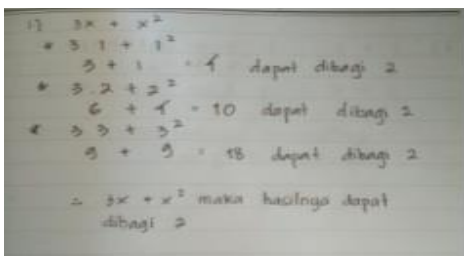 1) 3x + x²
* 3 1 + 1²
3 + 1 = 4 dapat dibagi 2
* 3.2 + 2²
6 + 4 = 10 dapat dibagi 2
* 3 3 + 3²
9 + 9 = 18 dapat dibagi 2
∴ 3x + x² maka hasilnya dapat
dibagi 2